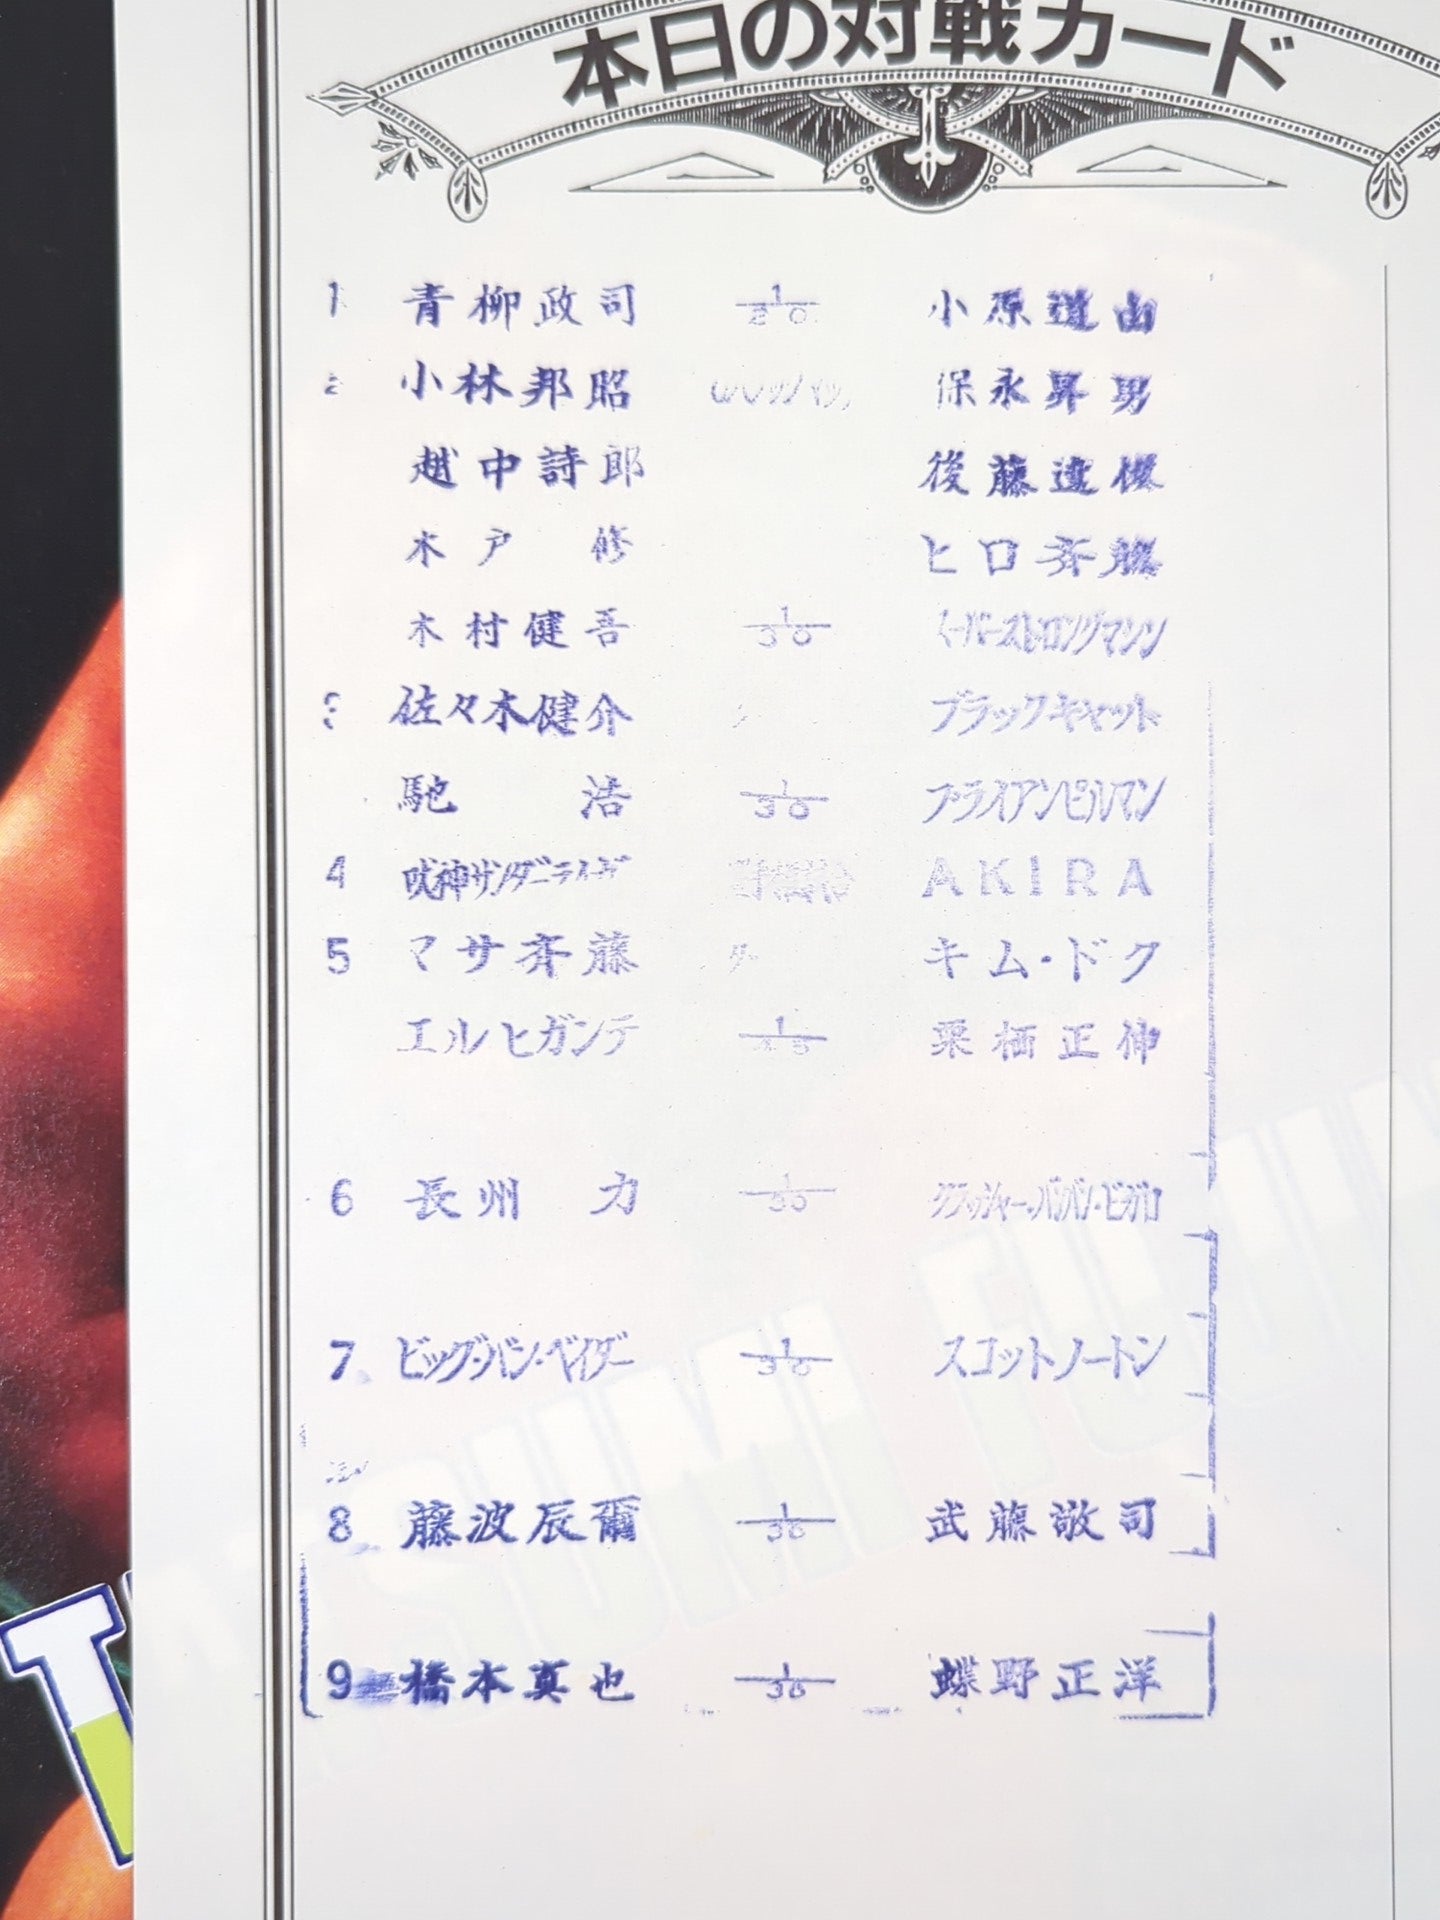 本日の対戦カード
1 青柳政司 1/20 小原道由
2 小林邦昭 保永昇男
越中詩郎 後藤達俊
木戸修 ヒロ斉藤
木村健吾 1/30 スーパーストロングマシン
3 佐々木健介 ブラックキャット
馳浩 1/30 ブライアンピルマン
4 獣神サンダーライガー AKIRA
5 マサ斉藤 キム・ドク
エルヒガンテ 1/45 栗栖正伸
6 長州力 1/30 クラッシャー・バンバン・ビガロ
7 ビッグ・バン・ベイダー 1/30 スコットノートン
8 藤波辰爾 1/30 武藤敬司
9 橋本真也 1/30 蝶野正洋